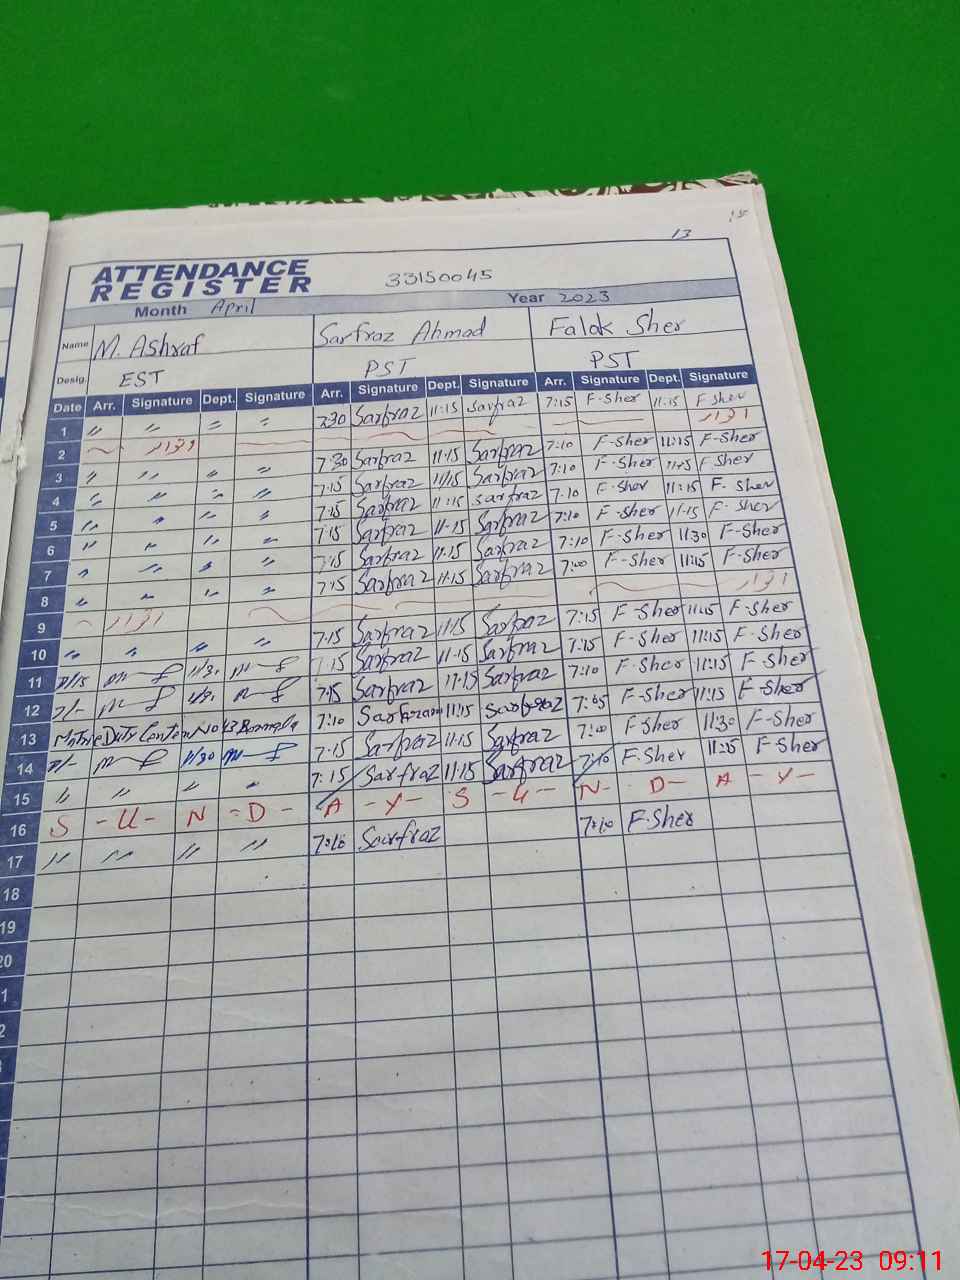 15
13
ATTENDANCE
REGISTER 33150045
Month April Year 2023
Name M. Ashraf Sarfraz Ahmad Falak Sher
Desig. EST PST PST
Date Arr. Signature Dept. Signature Arr. Signature Dept. Signature Arr. Signature Dept. Signature
1 〃 〃 〃 〃 7:30 Sarfraz 11:15 Sarfraz 7:15 F-Sher 11:15 F-Sher
2
3 〃 〃 〃 〃 7:30 Sarfraz 11:15 Sarfraz 7:10 F-Sher 11:15 F-Sher
4 〃 〃 〃 〃 7:15 Sarfraz 11:15 Sarfraz 7:10 F-Sher 11:15 F-Sher
5 〃 〃 〃 〃 7:15 Sarfraz 11:15 Sarfraz 7:10 F-Sher 11:15 F-Sher
6 〃 〃 〃 〃 7:15 Sarfraz 11:15 Sarfraz 7:10 F-Sher 11:15 F-Sher
7 〃 〃 〃 〃 7:15 Sarfraz 11:15 Sarfraz 7:10 F-Sher 11:30 F-Sher
8 〃 〃 〃 〃 7:15 Sarfraz 11:15 Sarfraz 7:00 F-Sher 11:15 F-Sher
9
10 〃 〃 〃 〃 7:15 Sarfraz 11:15 Sarfraz 7:15 F-Sher 11:15 F-Sher
11 7:15 Sarfraz 11:15 Sarfraz 7:15 F-Sher 11:15 F-Sher
12 7:15 Sarfraz 11:15 Sarfraz 7:10 F-Sher 11:15 F-Sher
13 Duty No 7:10 Sarfraz 11:15 Sarfraz 7:05 F-Sher 11:15 F-Sher
14 11:30 7:15 Sarfraz 11:15 Sarfraz 7:00 F-Sher 11:30 F-Sher
15 〃 〃 〃 〃 7:15 Sarfraz 11:15 Sarfraz 7:10 F-Sher 11:25 F-Sher
16 S - U - N - D - A - Y - S - U - N - D - A - Y -
17 〃 〃 〃 〃 7:10 Sarfraz 7:10 F-Sher
18
19
20
1
2
17-04-23 09:11